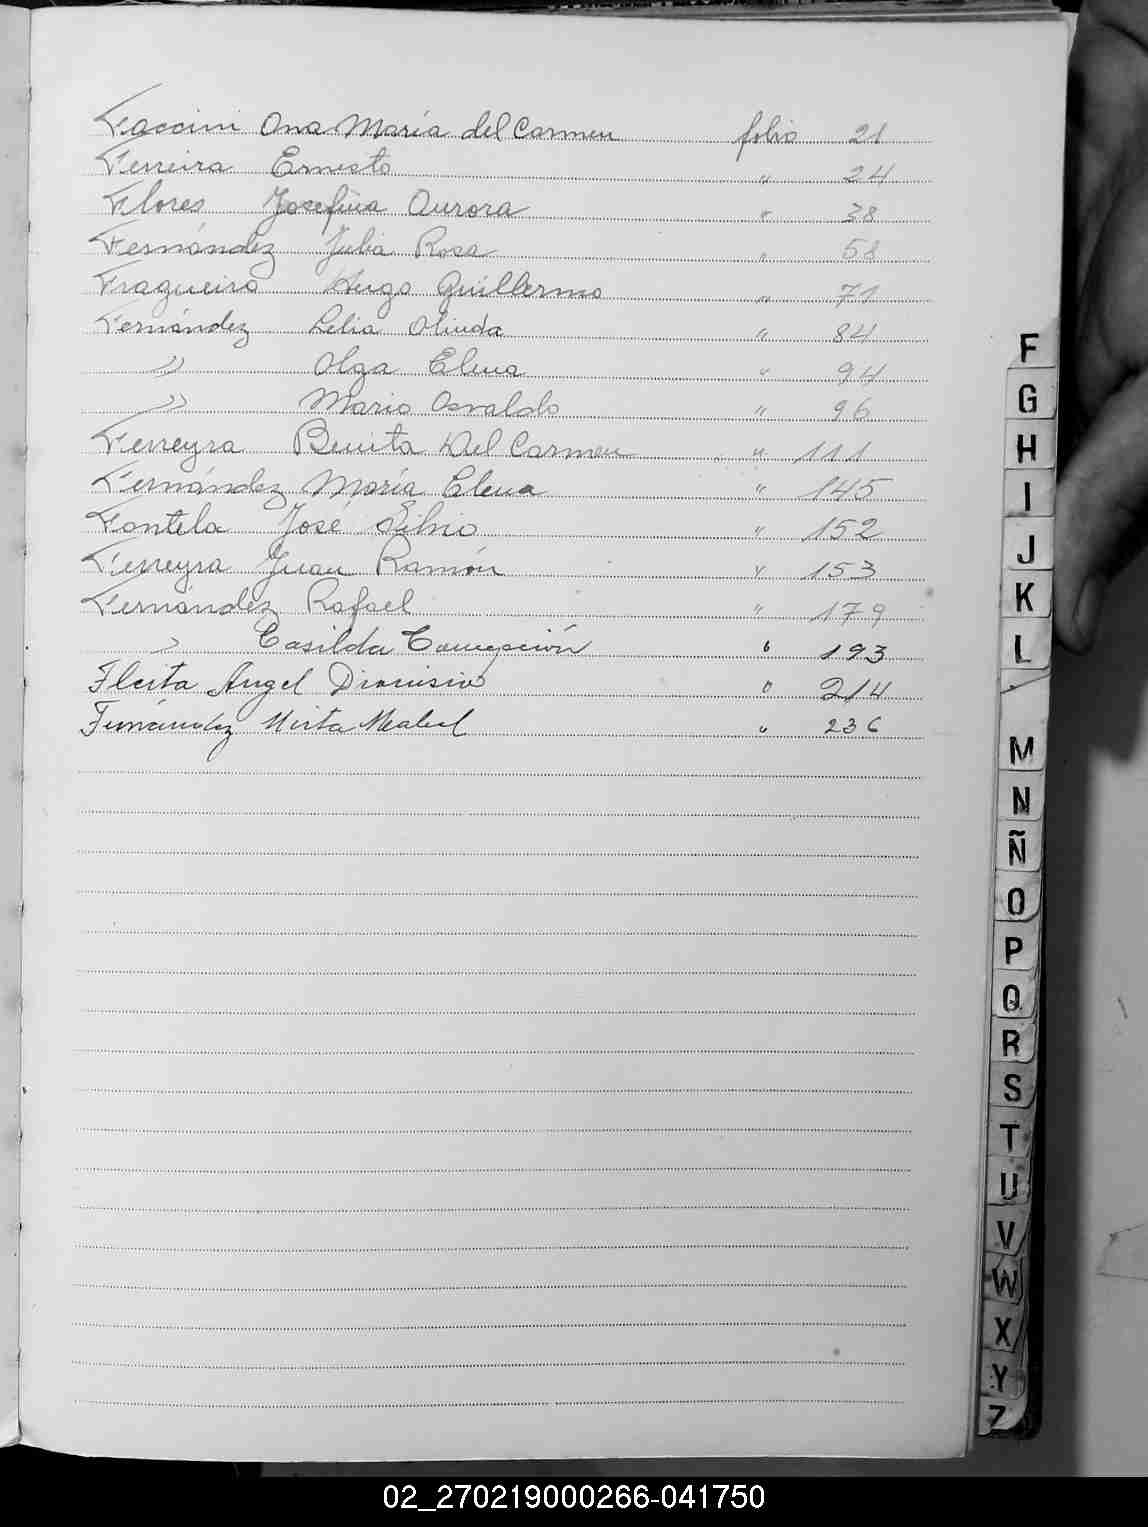 Faccini Ana María del Carmen folio 21
Ferreira Ernesto " 24
Flores Josefina Aurora " 38
Fernández Julia Rosa " 58
Fragueiro Hugo Guillermo " 71
Fernández Lelia Olinda " 84
" Olga Elena " 94
" Mario Osvaldo " 96
Ferreyra Benita Del Carmen " 111
Fernández María Elena " 145
Fontela José Silvio " 152
Ferreyra Juan Ramón " 153
Fernández Rafael " 179
" Casilda Concepción " 193
Fleita Angel Dionisio " 214
Fernández Mirta Mabel " 236
F
G
H
I
J
K
L
M
N
Ñ
O
P
Q
R
S
T
U
V
W
X
Y
Z
02_270219000266-041750